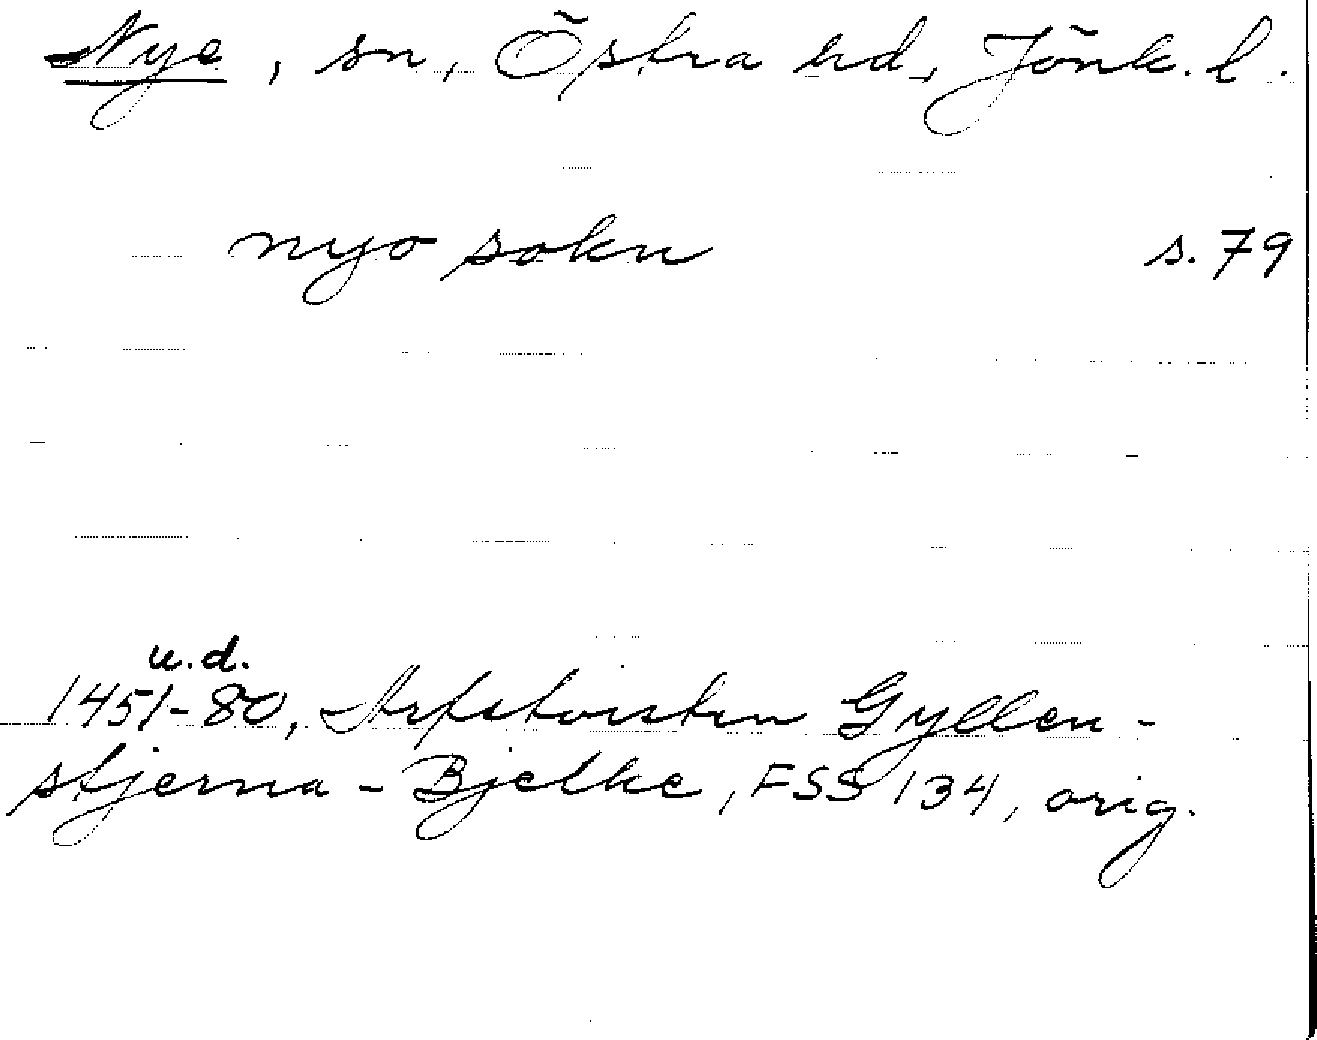 Nye, sn, Östra hd, Jönk. l.
nyo sokn s. 79
u.d.
1451-80, Arfstvisten Gyllen-
stjerna - Bjelke, FSS 134, orig.